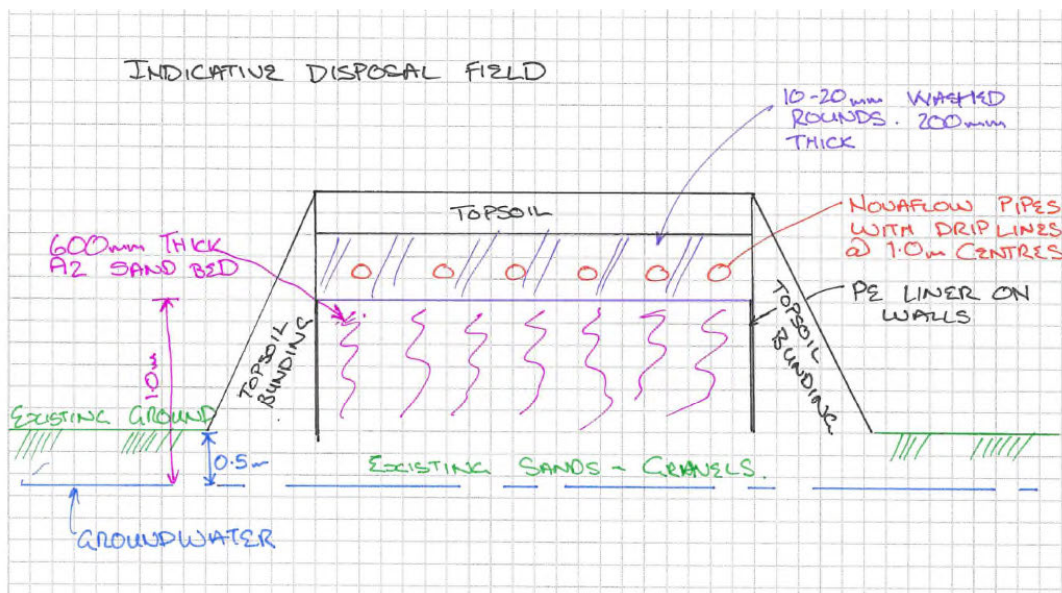 INDICATIVE DISPOSAL FIELD
10-20mm WASHED
ROUNDS. 200mm
THICK
TOPSOIL
NOVAFLOW PIPES
WITH DRIP LINES
@ 1.0m CENTRES
600mm THICK
A2 SAND BED
PE LINER ON
WALLS
TOPSOIL
BUNDING
TOPSOIL
BUNDING
1.0m
EXISTING GROUND
0.5m
EXISTING SANDS - GRAVELS.
GROUNDWATER